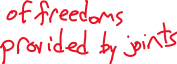 of freedoms
provided by joints